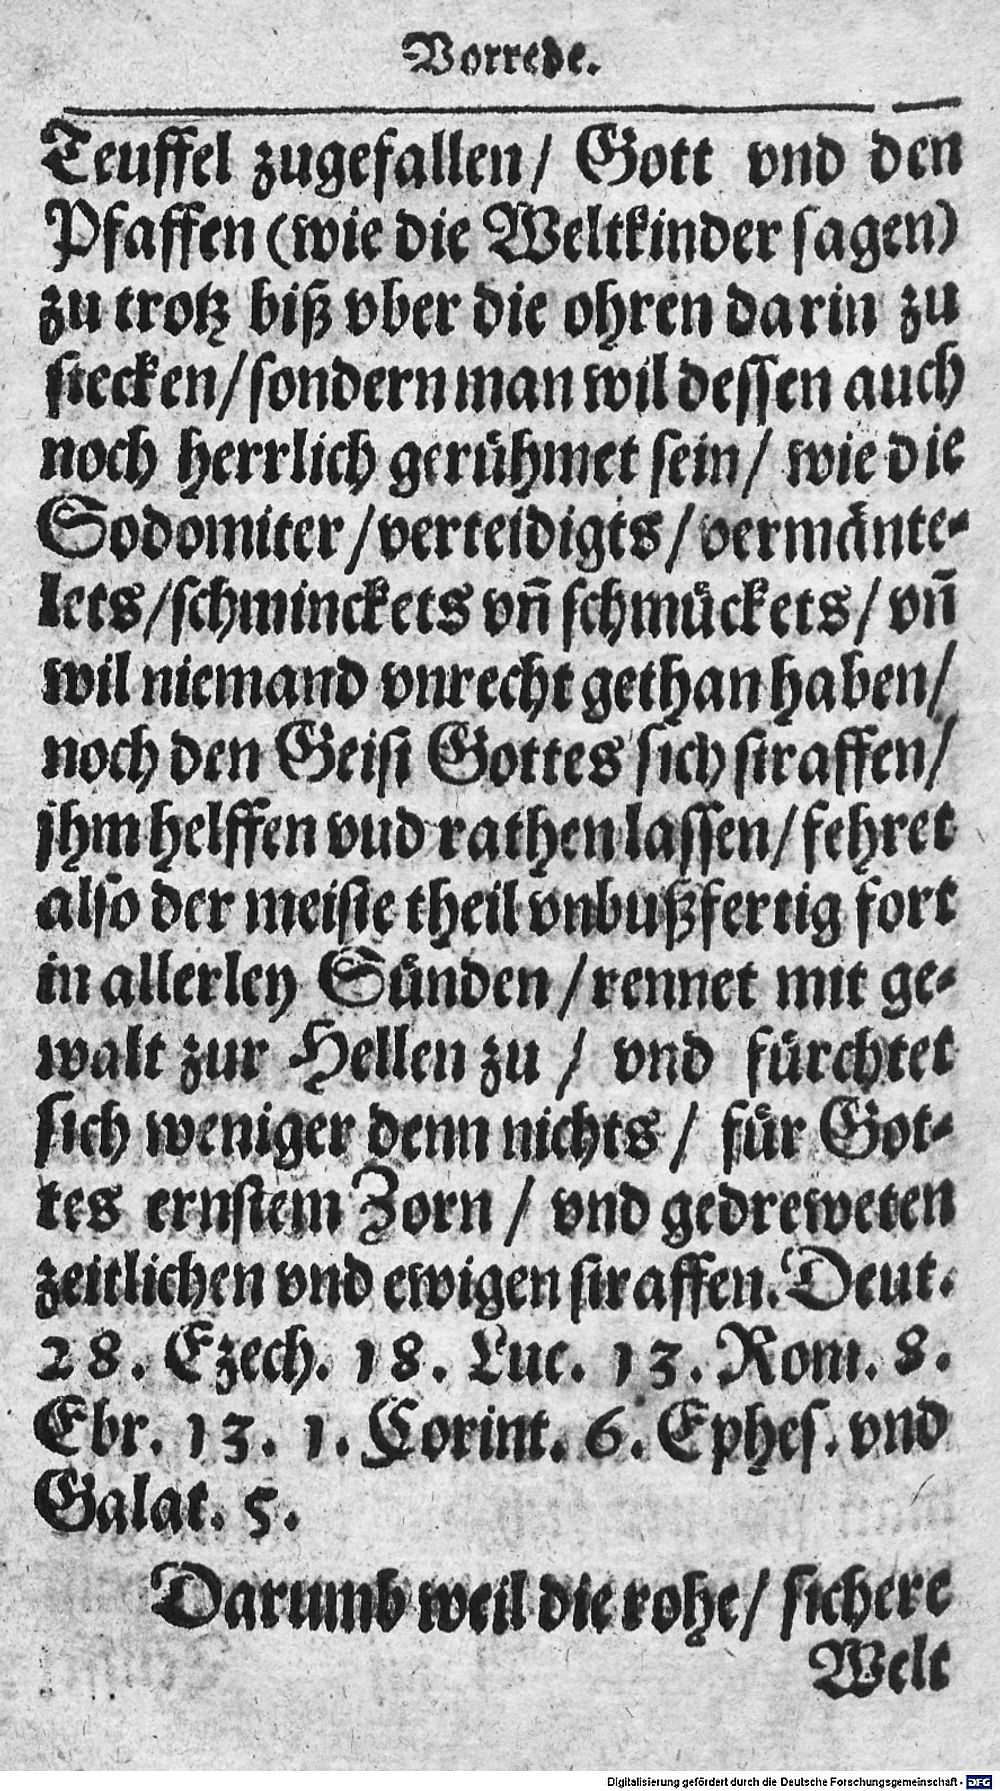 Vorrede.
Teuffel zugefallen/ Gott vnd den
Pfaffen (wie die Weltkinder sagen)
zu trotz biß vber die ohren darin zu
stecken/ sondern man wil dessen auch
noch herrlich gerühmet sein/ wie die
Sodomiter/ verteidigts/ vermänte-
lets/ schminckets vñ schmückets/ vñ
wil niemand vnrecht gethan haben/
noch den Geist Gottes sich straffen/
jhm helffen vud rathen lassen/ fehret
also der meiste theil vnbußfertig fort
in allerley Sünden/ rennet mit ge-
walt zur Hellen zu/ vnd fürchtet
sich weniger denn nichts/ für Got-
tes ernstem Zorn/ vnd gedreweten
zeitlichen vnd ewigen straffen. Deut.
28. Ezech. 18. Luc. 13. Rom. 8.
Ebr. 13. 1. Corint. 6. Ephes. vnd
Galat. 5.
Darumb weil die rohe/ sichere
Welt
Digitalisierung gefördert durch die Deutsche Forschungsgemeinschaft - DFG